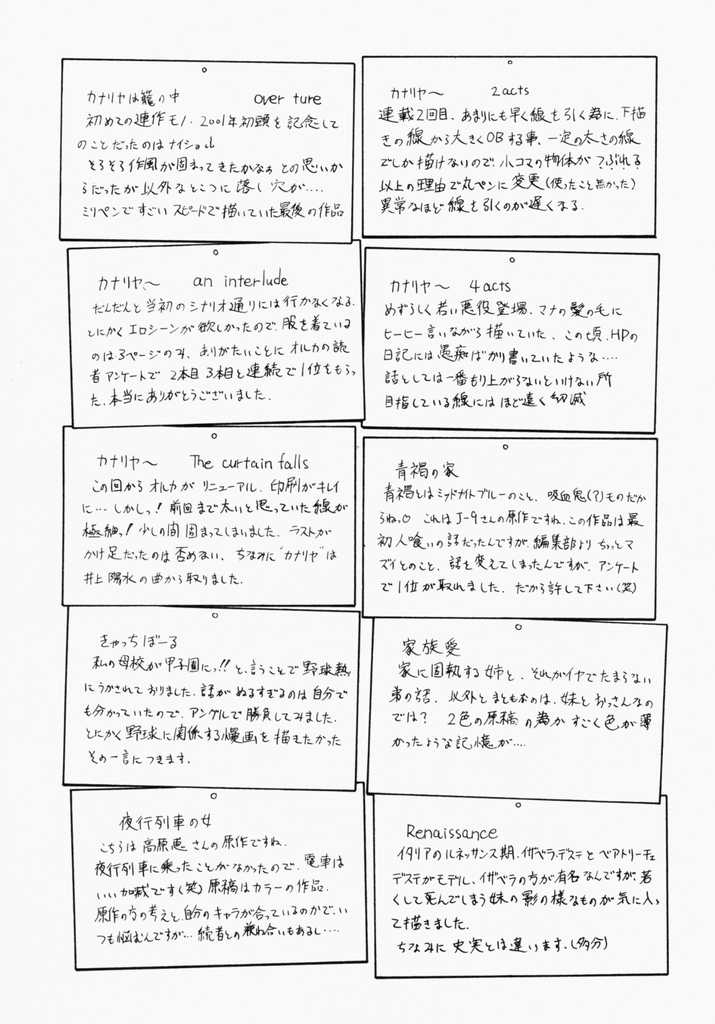 カナリヤは籠の中 over ture
初めての連作モノ・2001年初頭を記念して
のことだったのはナイショ
そろそろ作風が固まってきたかなぁ との思いか
らだったが以外なところに落し穴が‥‥
ミリペンですごいスピードで描いていた最後の作品
カナリヤ〜 2acts
連載2回目、あまりにも早く線を引く為に、下描
きの線から大きくOBする事、一定の太さの線
でしか描けないので、小コマの物体が?ぶれる
以上の理由で丸ペンに変更(使ったこと無かった)
異常なほど線を引くのが遅くなる.
カナリヤ〜 an interlude
だんだんと当初のシナリオ通りには行かなくなる.
とにかくエロシーンが欲しかったので、服を着ている
のは3ページのみ、ありがたいことにオルカの読
者アンケートで 2本目 3本目と連続で1位をもらっ
た、本当にありがとうございました.
カナリヤ〜 4acts
めずらしく若い悪役登場、マナの髪の毛に
ヒーヒー言いながら描いていた、この頃、HPの
日記には愚痴ばかり書いていたような‥‥
話としては一番もり上がらないといけない所
目指している線にはほど遠く 幻滅
カナリヤ〜 The curtain falls
この回からオルカがリニューアル、印刷がキレイ
に‥‥しかしっ!前回まで太いと思っていた線が
極細っ!少しの間固まってしまいました. ラストが
かけ足だったのは否めない、ちなみに"カナリヤ"は
井上陽水の曲から取りました.
青褐の家
青褐とはミッドナイトブルーのこと、吸血鬼(?)ものだか
らね。これはJ-9さんの原作ですね、この作品は最
初人喰いの話だったんですが、編集部よりちっとマ
ズイとのこと、話を変えてしまったんですが、アンケート
で1位が取れました、だから許して下さい(笑)
きゃっちぼーる
私の母校が甲子園にっ!!と、言うことで野球熱
にうかされておりました、話がぬるすぎるのは自分で
も分かっていたので、アングルで勝負してみました.
とにかく野球に関係する漫画を描きたかった
その一言につきます.
家族愛
家に固執する姉と、それがイヤでたまらない
弟の話、以外とまともなのは、妹とおっさんなの
では? 2色の原稿の為かすごく色が薄
かったような記憶が‥‥
夜行列車の女
こちらは高原恵さんの原作ですね.
夜行列車に乗ったことがなかったので、電車は
いい加減です(笑)原稿はカラーの作品
原作の方の考えと、自分のキャラが合っているのかで、い
つも悩むんですが‥‥続者との兼ね合いもあるし‥‥
Renaissance
イタリアのルネッサンス期、イザベラ・デステとベアトリーチェ
デステがモデル、イザベラの方が有名なんですが、若
くして死んでしまう妹の影の様なものが気に入っ
て描きました.
ちなみに史実とは違います.(多分)